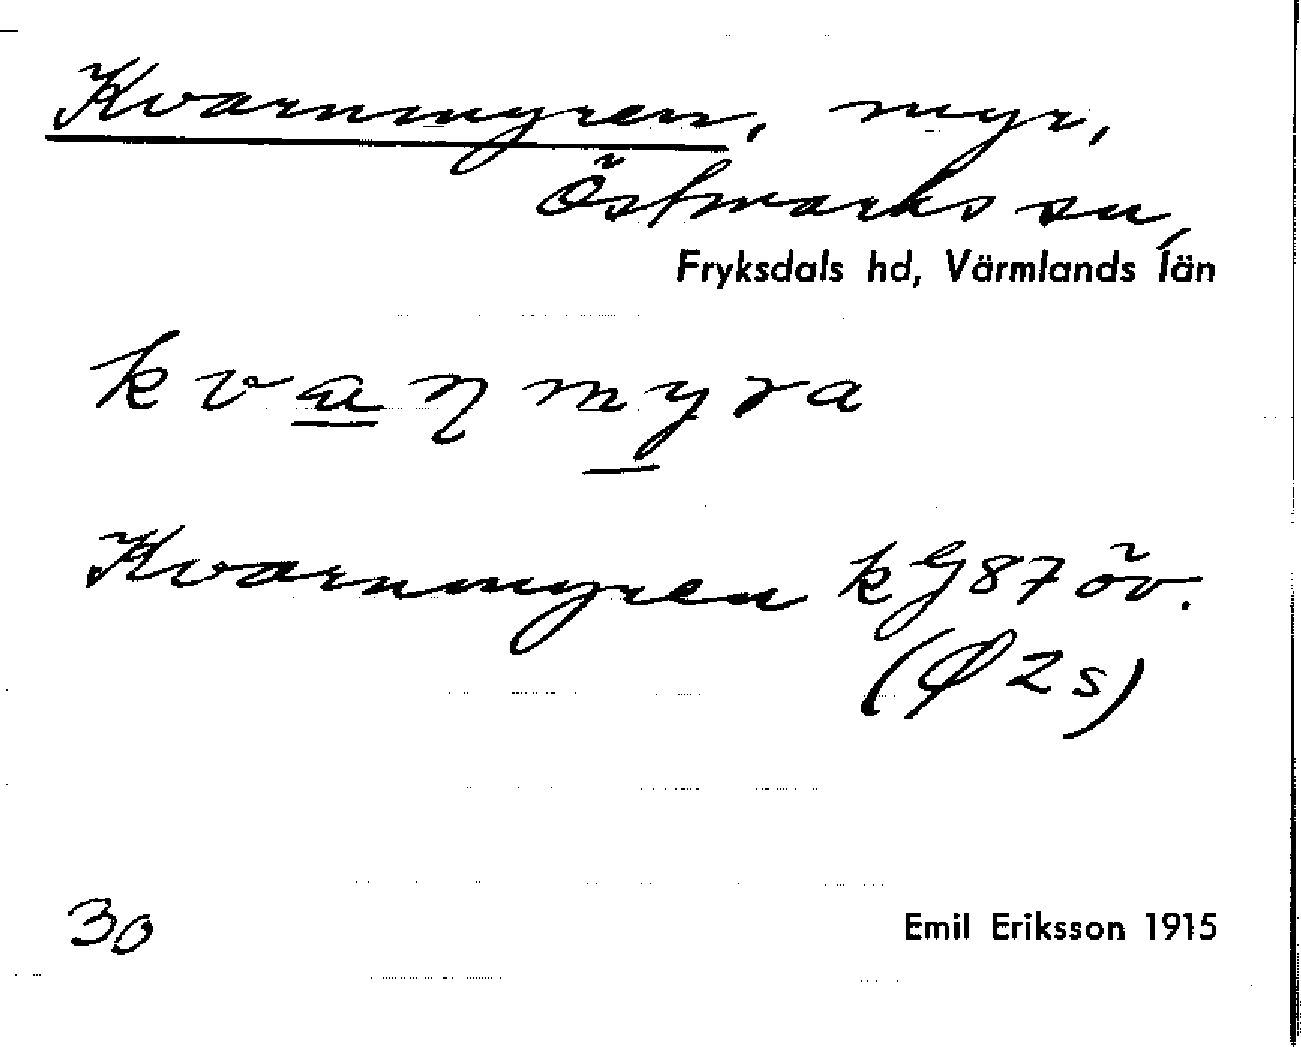 Kvarnmyren, myr,
Östmarks sn,
Fryksdals hd, Värmlands län
kvaɳmyra
Kvarnmyren kg 87 öv.
(Ø 2s)
30
Emil Eriksson 1915